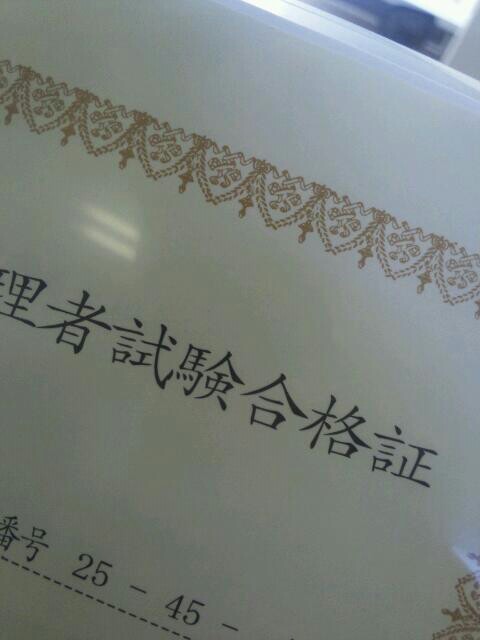 理者試験合格証
番号 25-45-